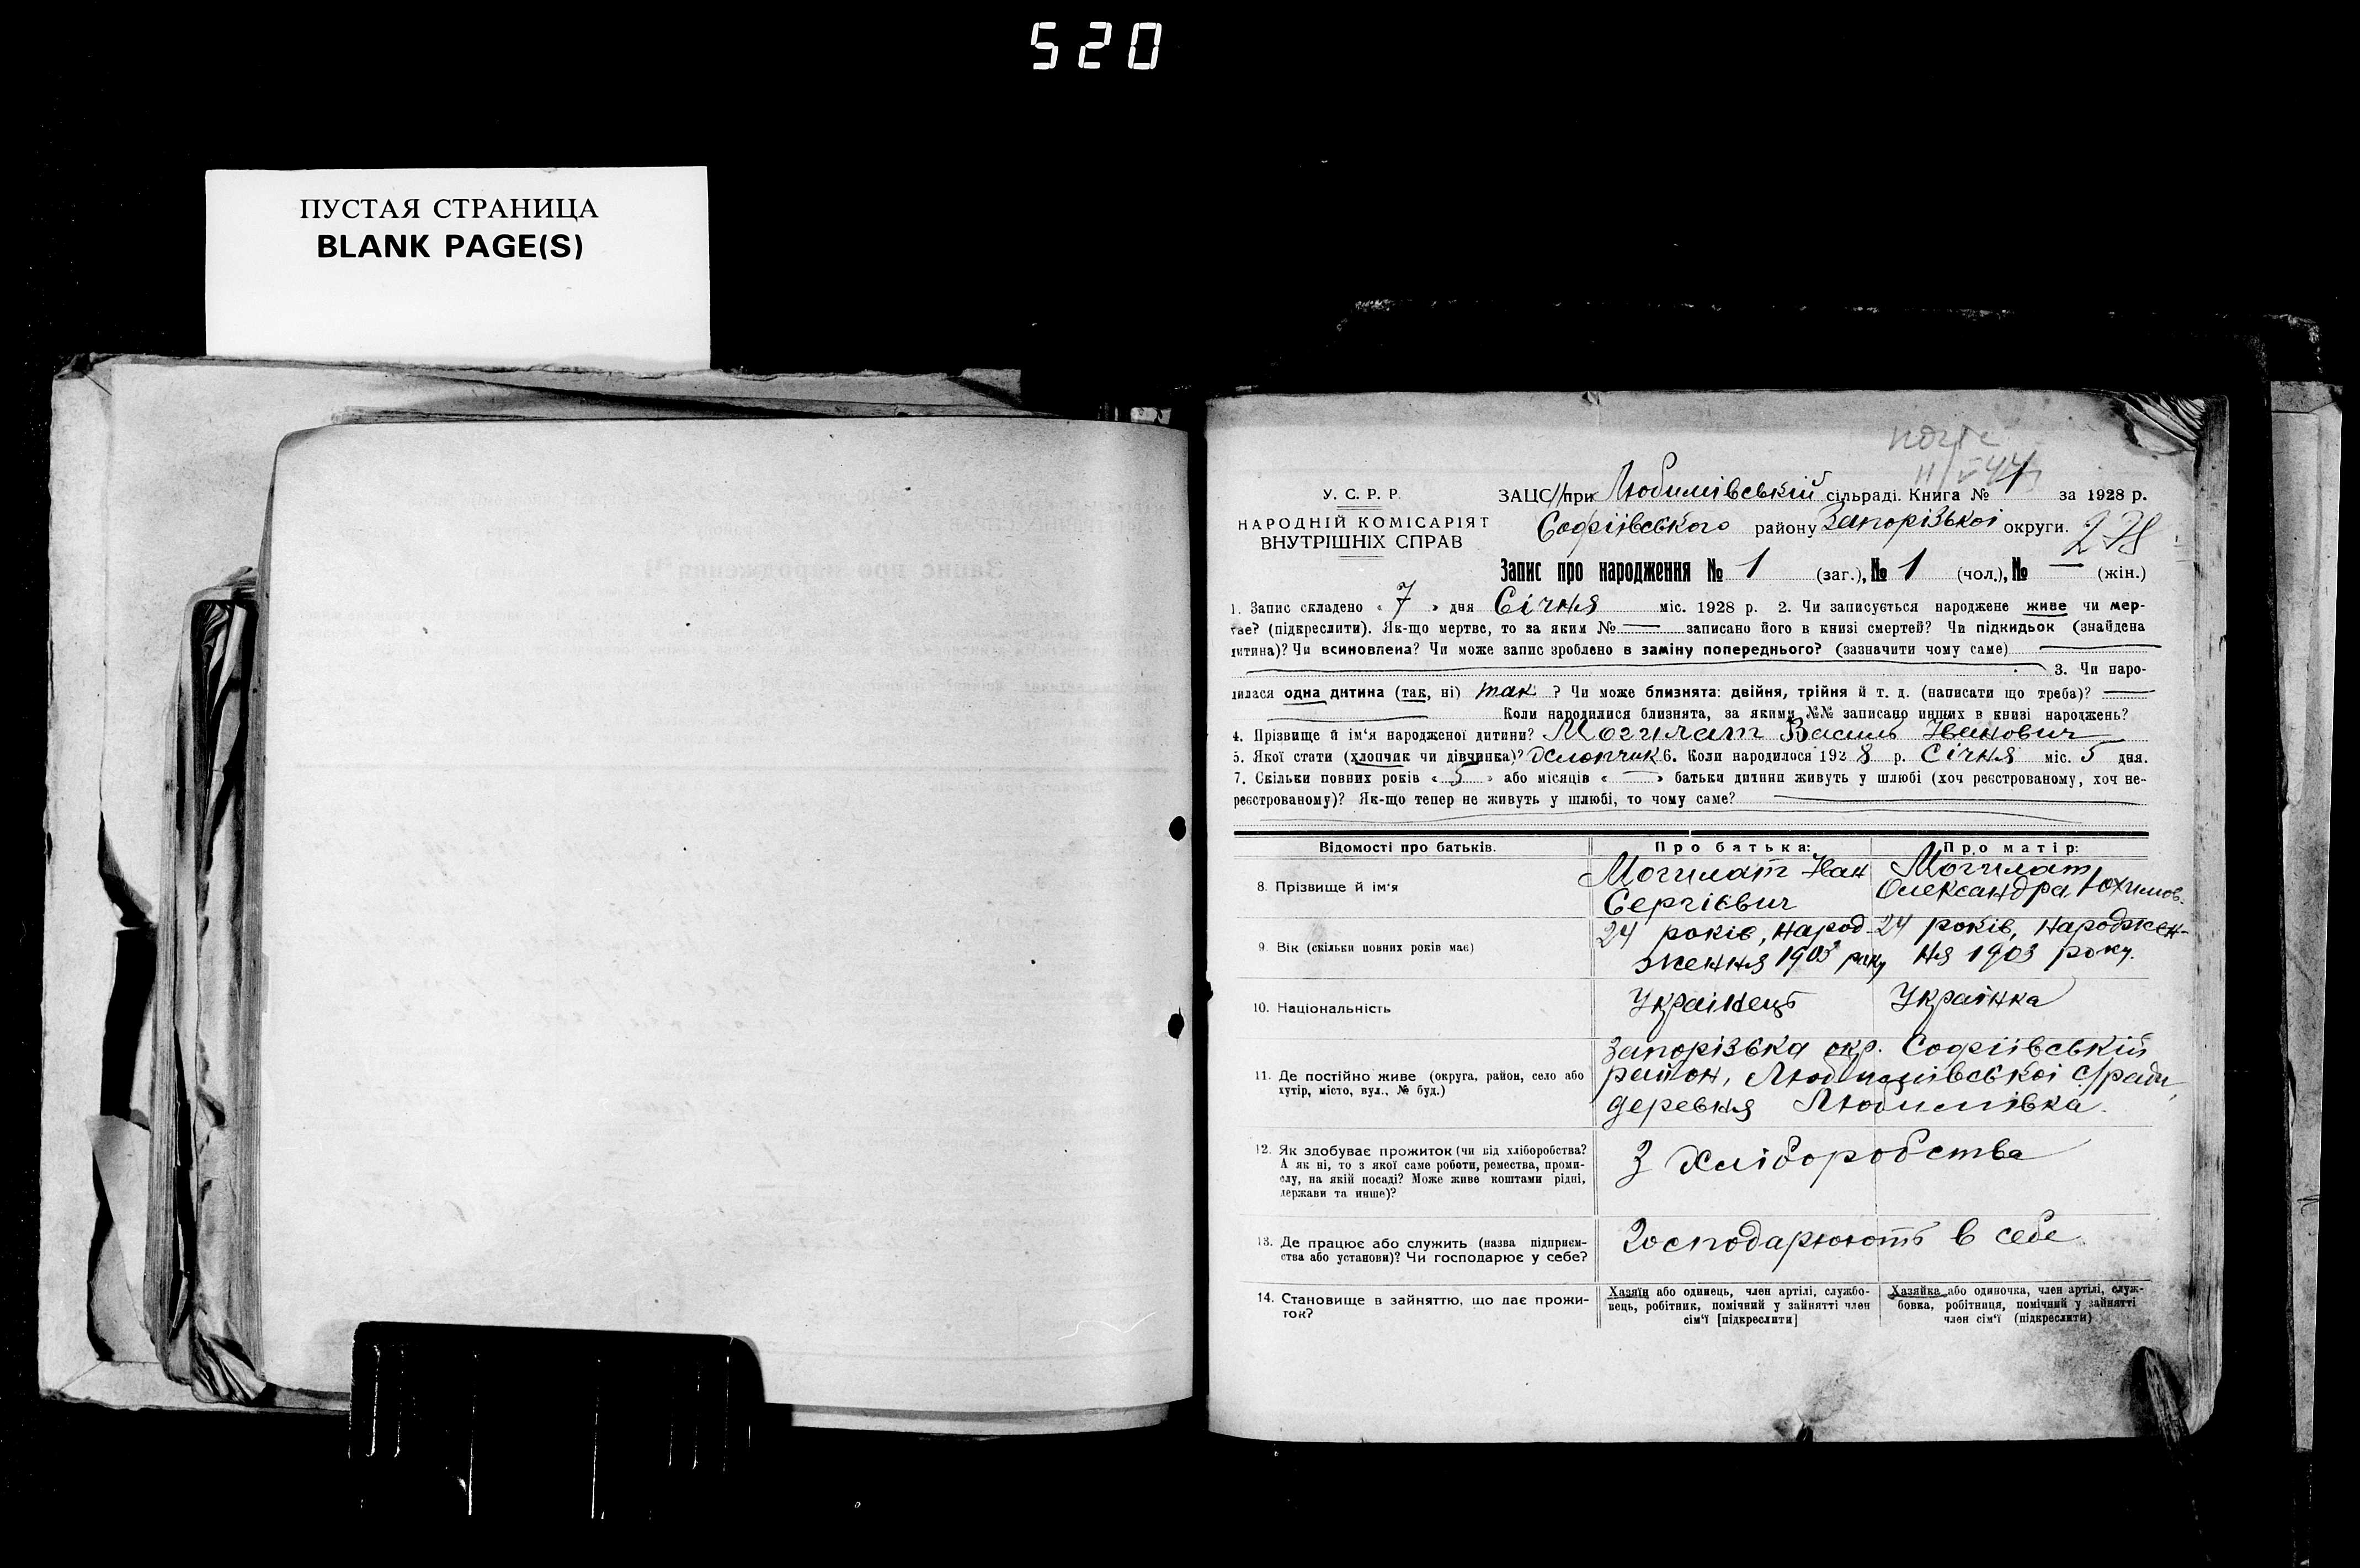 520
ПУСТАЯ СТРАНИЦА
BLANK PAGE(S)
У. С. Р. Р.
НАРОДНІЙ КОМІСАРІЯТ
ВНУТРІШНІХ СПРАВ
ЗАЦС//при Любимівській сільраді. Книга № 1 за 1928 р.
Софіївського району Запорізькоі округи. 278
Запис про народження № 1 (заг.), № 1 (чол.), № — (жін.)
1. Запис складено « 7 » дня Січня міс. 1928 р. 2. Чи записується народжене живе чи мер-
тве? (підкреслити). Як-що мертве, то за яким № — записано його в книзі смертей? Чи підкидьок (знайдена
дитина)? Чи всиновлена? Чи може запис зроблено в заміну попереднього? (зазначити чому саме)
3. Чи наро-
дилася одна дитина (так, ні) так ? Чи може близнята: двійня, трійня й т. д. (написати що треба)? —
Коли народилися близнята, за якими №№ записано инших в книзі народжень?
4. Прізвище й ім'я народженої дитини? Могилат Василь Іванович
5. Якої стати (хлопчик чи дівчинка)? Хлопчик 6. Коли народилося 1928 р. Січня міс. 5 дня.
7. Скільки повних років « 5 » або місяців « — » батьки дитини живуть у шлюбі (хоч реєстрованому, хоч не-
реєстрованому)? Як-що тепер не живуть у шлюбі, то чому саме?
Відомості про батьків. Про батька: Про матір:
8. Прізвище й ім'я
Могилат Іван
Сергієвич
Могилат
Олександра Юхимов.
9. Вік (скільки повних років має)
24 років, народ-
ження 1903 року
24 років, народжен-
ня 1903 року.
10. Національність
Українець
Українка
11. Де постійно живе (округа, район, село або
хутір, місто, вул., № буд.)
Запорізька окр. Софіівській
район, Любимівськоі с/ради,
деревня Любимівка.
12. Як здобуває прожиток (чи від хліборобства?
А як ні, то з якої саме роботи, ремества, проми-
слу, на якій посаді? Може живе коштами рідні,
держави та инше)?
З хліборобства
13. Де працює або служить (назва підприєм-
ства або установи)? Чи господарює у себе?
Господарюють в себе
14. Становище в зайняттю, що дає прожи-
ток?
Хазяїн або одинець, член артілі, службо-
вець, робітник, помічний у зайнятті член
сім'ї [підкреслити]
Хазяйка або одиночка, член артілі, служ-
бовка, робітниця, помічний у зайнятті
член сім'ї (підкреслити)